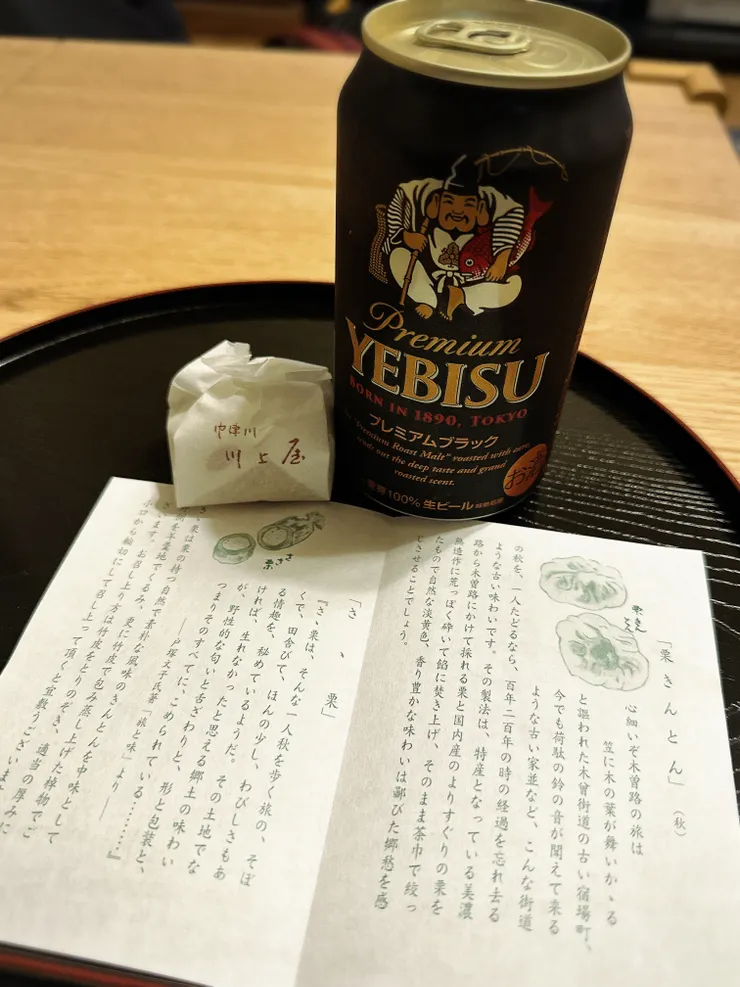 Premium
YEBISU
BORN IN 1890, TOKYO
プレミアムブラック
"Premium Roast Malt" roasted with care,
sends out the deep taste and grand
roasted scent.
お酒
麦芽100% 生ビール
中津川
川上屋
栗きんとん
「栗きんとん」（秋）
心細いぞ木曽路の旅は
笠に木の葉が舞いかゝる
と謳われた木曾街道の古い宿場町、
今でも荷駄の鈴の音が聞えて来る
ような古い家並など、こんな街道
の秋を、一人たどるなら、百年二百年の時の経過を忘れ去る
ような古い味わいです。その製法は、特産となっている美濃
路から木曽路にかけて採れる栗と国内産のよりすぐりの栗を
無造作に荒っぽく砕いて餡に焚き上げ、そのまま茶巾で絞っ
たもので自然な淡黄色、香り豊かな味わいは鄙びた郷愁を感
じさせることでしょう。
栗さゝ
「さゝ栗」
『さゝ栗は、そんな一人秋を歩く旅の、そぼ
くで、田舎びて、ほんの少し、わびしさもあ
る情趣を、秘めているようだ。その土地でな
ければ、生れなかったと思える郷土の味わい
が、野性的な匂いと舌ざわりと、形と包装と、
つまりそのすべてに、こめられている………』
──戸塚文子氏著「旅と味」より──
さゝ栗は栗の持つ自然で素朴な風味のきんとんを中味として
を羊羹地でくるみ、更に竹皮で包み蒸し上げた棹物でご
います。お召し上り方は竹皮をとりのぞき、適当の厚みに
小口から輪切にして召し上って頂くと宜敷うございます